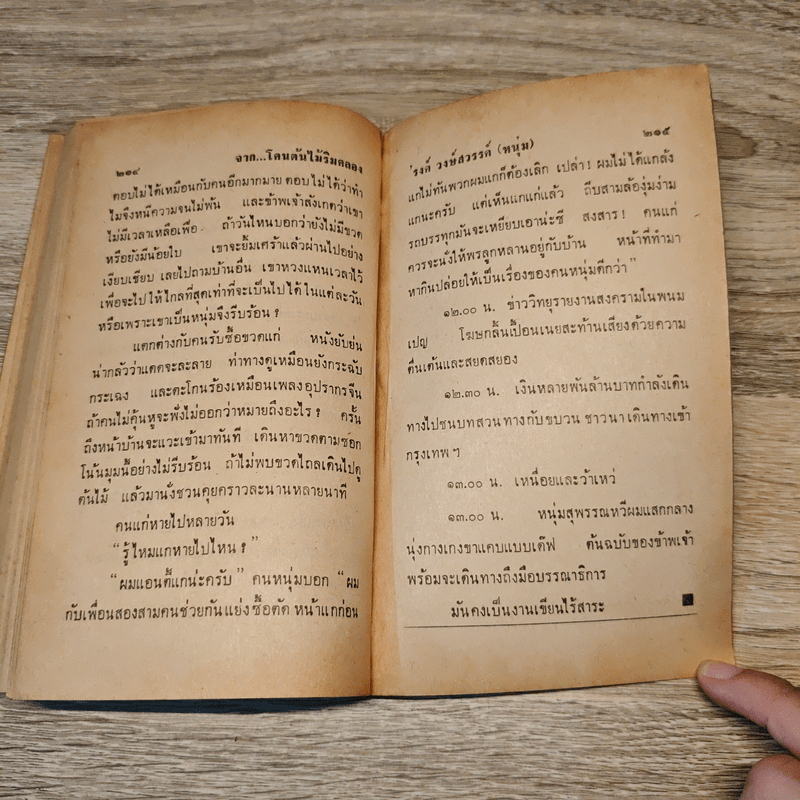 ๒๑๔ จาก...โคนต้นไม้ริมคลอง
ตอบไม่ได้เหมือนกับคนอีกมากมาย ตอบไม่ได้ว่าทำ
ไมจึงหนีความจนไม่พ้น และข้าพเจ้าสังเกตว่าเขา
ไม่มีเวลาเหลือเฟือ ถ้าวันไหนบอกว่ายังไม่มีขวด
หรือยังมีน้อยใบ เขาจะยิ้มเศร้าแล้วผ่านไปอย่าง
เงียบเชียบ เลยไปถามบ้านอื่น เขาหวงแหนเวลาไว้
เพื่อจะไปให้ไกลที่สุดเท่าที่จะเป็นไปได้ในแต่ละวัน
หรือเพราะเขาเป็นหนุ่มจึงรีบร้อน ?
แตกต่างกับคนรับซื้อขวดแก่ หนังยับย่น
น่ากลัวว่าแดดจะละลาย ท่าทางดูเหมือนยังกระฉับ
กระเฉง และตะโกนร้องเหมือนเพลงอุปรากรจีน
ถ้าคนไม่คุ้นหูจะฟังไม่ออกว่าหมายถึงอะไร ? ครั้น
ถึงหน้าบ้านจะแวะเข้ามาทันที เดินหาขวดตามซอก
โน้นมุมนี้อย่างไม่รีบร้อน ถ้าไม่พบขวดไถลเดินไปดู
ต้นไม้ แล้วมานั่งชวนคุยคราวละนานหลายนาที
คนแก่หายไปหลายวัน
“รู้ไหมแกหายไปไหน ?”
“ผมแอนตี้แกน่ะครับ” คนหนุ่มบอก “ผม
กับเพื่อนสองสามคนช่วยกันแย่งซื้อตัดหน้าแกก่อน
'รงค์ วงษ์สวรรค์ (หนุ่ม) ๒๑๕
แกไม่ทันพวกผมแกก็ต้องเลิก เปล่า ! ผมไม่ได้แกล้ง
แกนะครับ แต่เห็นแกแก่แล้ว ถีบสามล้องุ่มง่าม
รถบรรทุกมันจะเหยียบเอาน่ะซี สงสาร ! คนแก่
ควรจะนั่งให้พรลูกหลานอยู่กับบ้าน หน้าที่ทำมา
หากินปล่อยให้เป็นเรื่องของคนหนุ่มดีกว่า”
๑๒.๐๐ น. ข่าววิทยุรายงานสงครามในพนม
เปญ โฆษกลิ้นเปื้อนเนยสะท้านเสียงด้วยความ
ตื่นเต้นและสยดสยอง
๑๒.๓๐ น. เงินหลายพันล้านบาทกำลังเดิน
ทางไปชนบทสวนทางกับขบวน ชาวนา เดินทางเข้า
กรุงเทพ ฯ
๑๓.๐๐ น. เหนื่อยและว้าเหว่
๑๓.๐๐ น. หนุ่มสุพรรณหวีผมแสกกลาง
นุ่งกางเกงขาแคบแบบเด๊ฟ ต้นฉบับของข้าพเจ้า
พร้อมจะเดินทางถึงมือบรรณาธิการ
มันคงเป็นงานเขียนไร้สาระ